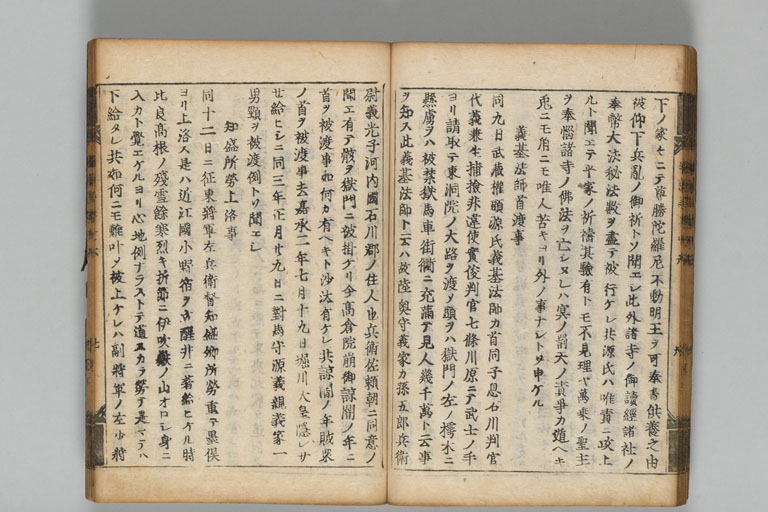 下ノ家々ニテ尊勝陀羅尼不動明王ヲ可奉書供養之由
被仰下兵乱ノ御祈トソ聞エ此外諸寺ノ御読經諸社ノ
奉幣大法秘法数ヲ盡テ被行ケレ共源氏ハ唯責ニ攻上
ルト聞エテ平家ノ祈禱其驗有トモ不見理ヤ萬乗ノ聖主
ヲ奉惱諸寺ノ佛法ヲ亡シヌレハ冥ノ罰天ノ責爭カ遁ヘキ
兎ニモ角ニモ唯人苦キヨリ外ノ事ナシトソ申ケル
義基法師首渡事
同九日武蔵權頭源氏義基法師カ首同子息石川判官
代義兼生捕檢非違使實俊判官七條川原ニテ武士ノ手
ヨリ請取テ東洞院ノ大路ヲ渡ソ頭ヲハ獄門ノ左ノ樗木ニ
懸虜ヲハ被禁獄馬車街衢ニ充滿テ見人幾千萬ト云事
ヲ知ス此義基法師ト云ハ故陸奥守義家カ孫五郎兵衛
尉義光子河内國石川郡ノ住人也兵衛佐頼朝ニ同意ノ
聞エ有テ骸ヲ獄門ニ被掛ケリ今高倉院崩御諒闇ノ年ニ
首ヲ被渡事如何カ有ヘキト沙汰有ケレ共諒闇ノ年賊衆
ノ首ヲ被渡事去嘉承二年七月十九日堀川天皇隠レサ
せ給ヒシニ同三年正月廿九日ニ對馬守源義親義家一
男頸ヲ被渡例トソ聞エシ
知盛所勞上洛事
同十二日ニ征東將軍左兵衛督知盛卿所勞重テ墨俣
ヨリ上洛ス是ハ近江國小野宿ヲ立醒井ニ著給ヒケル時
比良高根ノ残雪餘寒烈キ折節ニ伊吹嶽ノ山オロシ身ニ
入カト覺エケルヨリ心地例ナラストテ道スカラ勞テ是マテハ
下給タレ共如何ニモ難叶ソ被上ケレハ副將軍ノ左少將